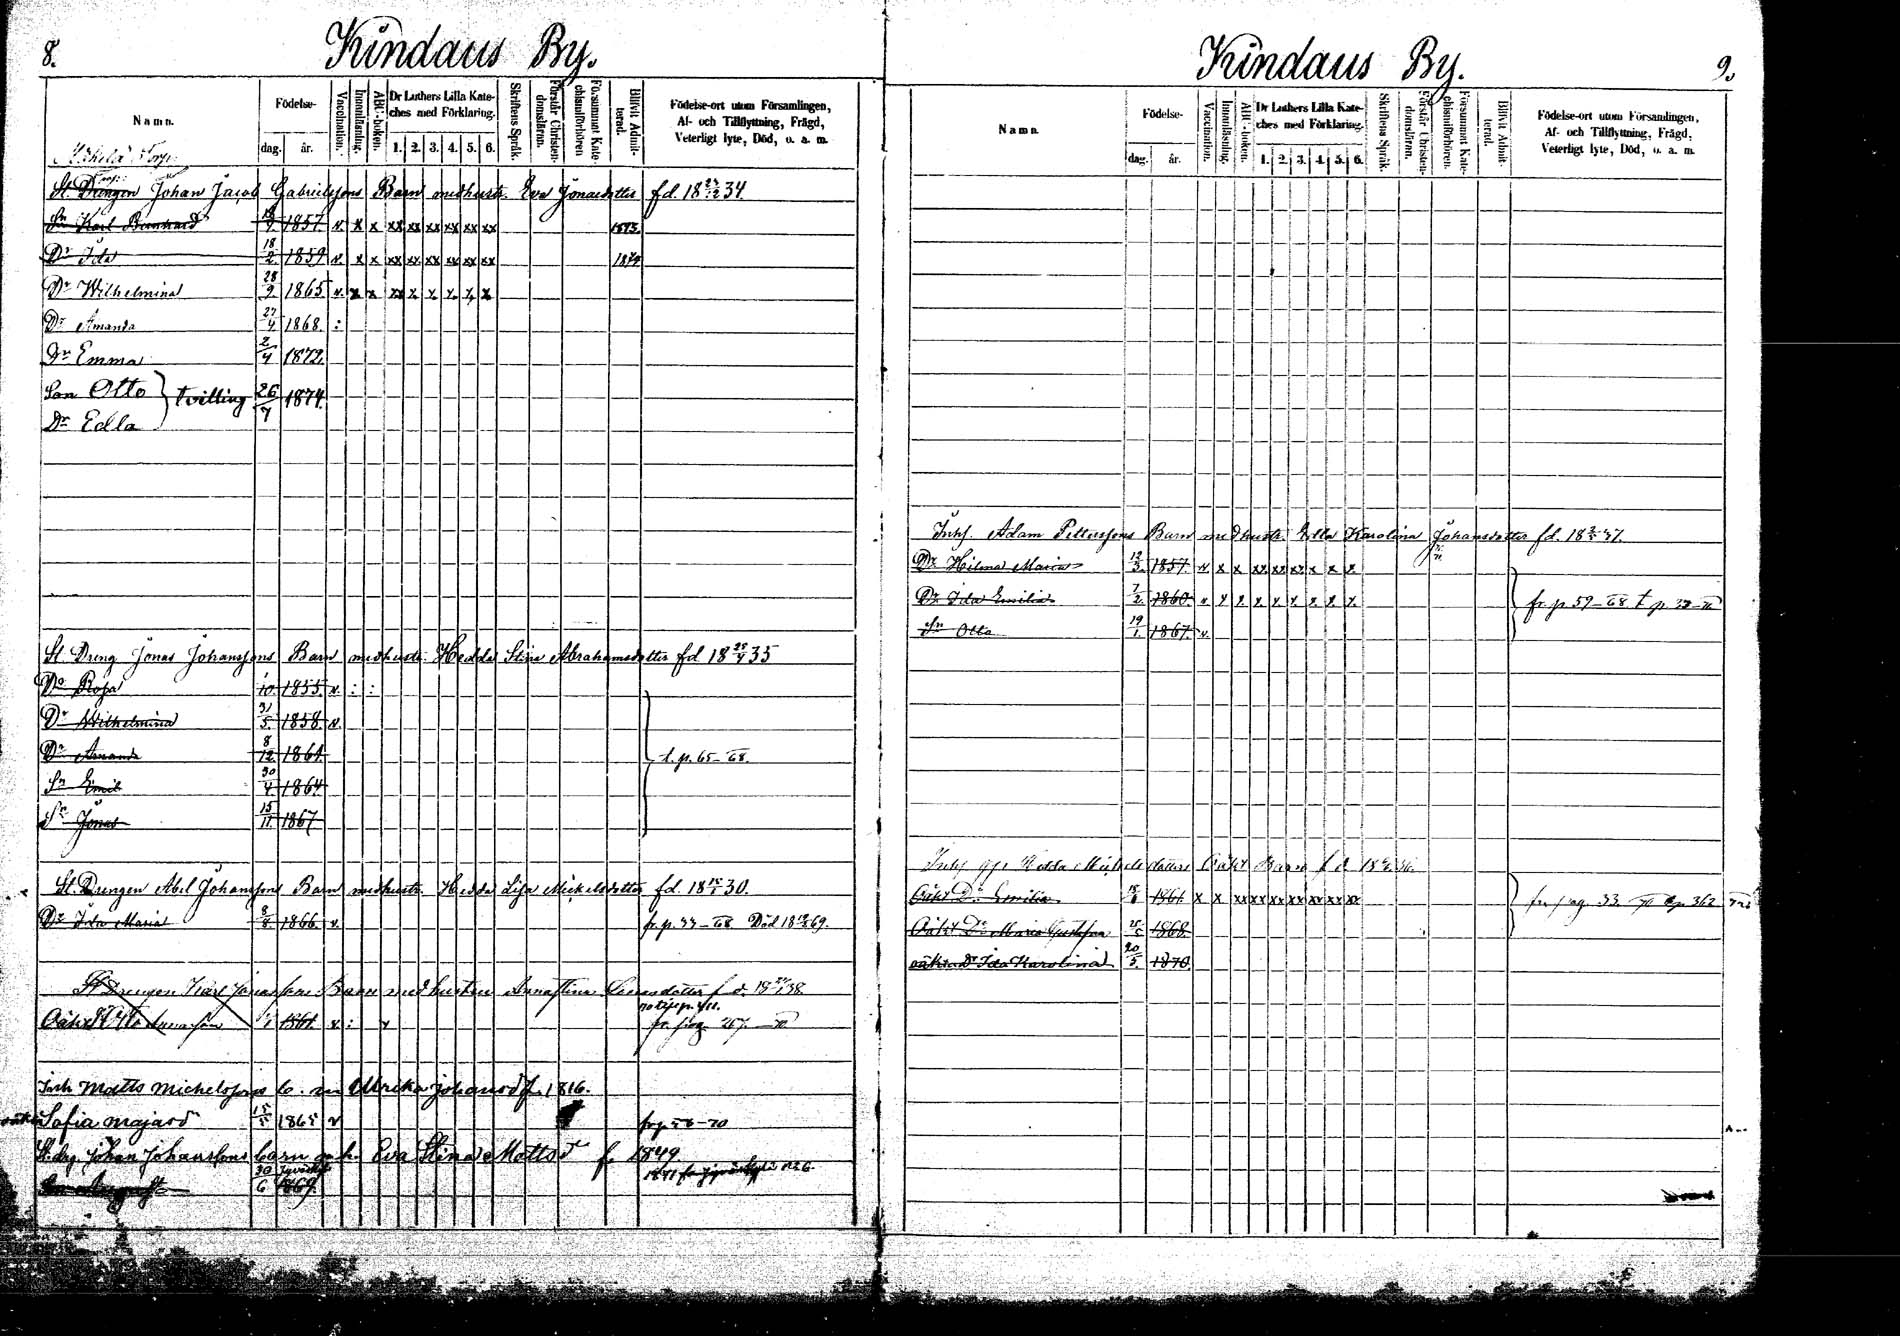 8.
Kindaus By.
Namn.
Födelse-
dag.
år.
Vaccination.
Innanläsning.
ABC-boken.
Dr Luthers Lilla Kate-
ches med Förklaring.
1. 2. 3. 4. 5. 6.
Skriftens Språk.
Förstår Christen-
domsläran.
Försummat Kate-
chismiförhören
Blifvit Admit-
terad.
Födelse-ort utom Församlingen,
Af- och Tillflyttning, Frägd,
Veterligt lyte, Död, o. a. m.
St. Drengen Johan Jacob Gabrielssons Barn med hustr. Eva Jonaedotter fd. 18 23/12 34.
Sn Karl Bernhard 1857. v. x x xx xx xx xx xx xx 1873.
Dr Ida 18/2. 1859 v. x x xx xx xx xx xx xx 1874
Dr Wilhelmina 28/9. 1865. v. x x xx x. x. x. x. x.
Dr Amanda 27/4. 1868. :
Dr Emma 2/4 1872.
Son Otto } tvilling 26/7 1874.
Dr Edla
St. Dreng Jonas Johanssons Barn med hustr. Hedda Stina Abrahamsdotter fd 18 35
Dr Rosa 1/10. 1855. v. : :
Dr Wilhelmina 31/5. 1858. v.
Dr Amanda 8/12. 1861.
Sn Emil 30/4. 1864 t. p. 65-68.
Sn Jonas 15/11. 1867
St. Drengen Abel Johanssons Barn med hustr. Hedda Lisa Mickelsdotter fd. 18 30.
Dr Ida Maria 8/8. 1866. v. fr. p. 33-68 Död 18 69.
St Drengen Karl Jonassons Barn med hustru Annastina fd. 18 38
Oäkt Otto 1861. v. : fr. pag. 267.
Inh Matts Michelssons b. m Ulrika Johansd f. 1816.
oäkta Sofia Majasd 15/5 1865 v fr p 58-70
St. drg. Johan Johanssons barn m h. Eva Stina Mattsd f. 1849.
Son August 30/6 1869. 1871 N26.
Kindaus By.
9.
Namn.
Födelse-
dag.
år.
Vaccination.
Innanläsning.
ABC-boken.
Dr Luthers Lilla Kate-
ches med Förklaring.
1. 2. 3. 4. 5. 6.
Skriftens Språk.
Förstår Christen-
domsläran.
Försummat Kate-
chismiförhören.
Blifvit Admit-
terad.
Födelse-ort utom Församlingen,
Af- och Tillflyttning, Frägd,
Veterligt lyte, Död, o. a. m.
Inhs. Adam Petterssons Barn med hustr. Ulla Karolina Johansdotter fd. 18 37.
Dr Hilma Maria 12/3. 1857. v x x xx xx xx x x x
Dr Ida Emilia 7/2. 1860. v x x. x. x. x. x. x. x. fr. p. 59-68 t p.
Sn Otto 19/1. 1867. v.
Inhs Hedda Mickelsdotters Oäkt Barn f d. 18
Oäkt Dr. Emilia 1861 x x xx xx xx xx xx xx xx fr. pag. 33. 70 p. 362
Oäkt Dr Maria Gustafva 1868.
oäkta Dr Ida Karolina 20/5. 1870.